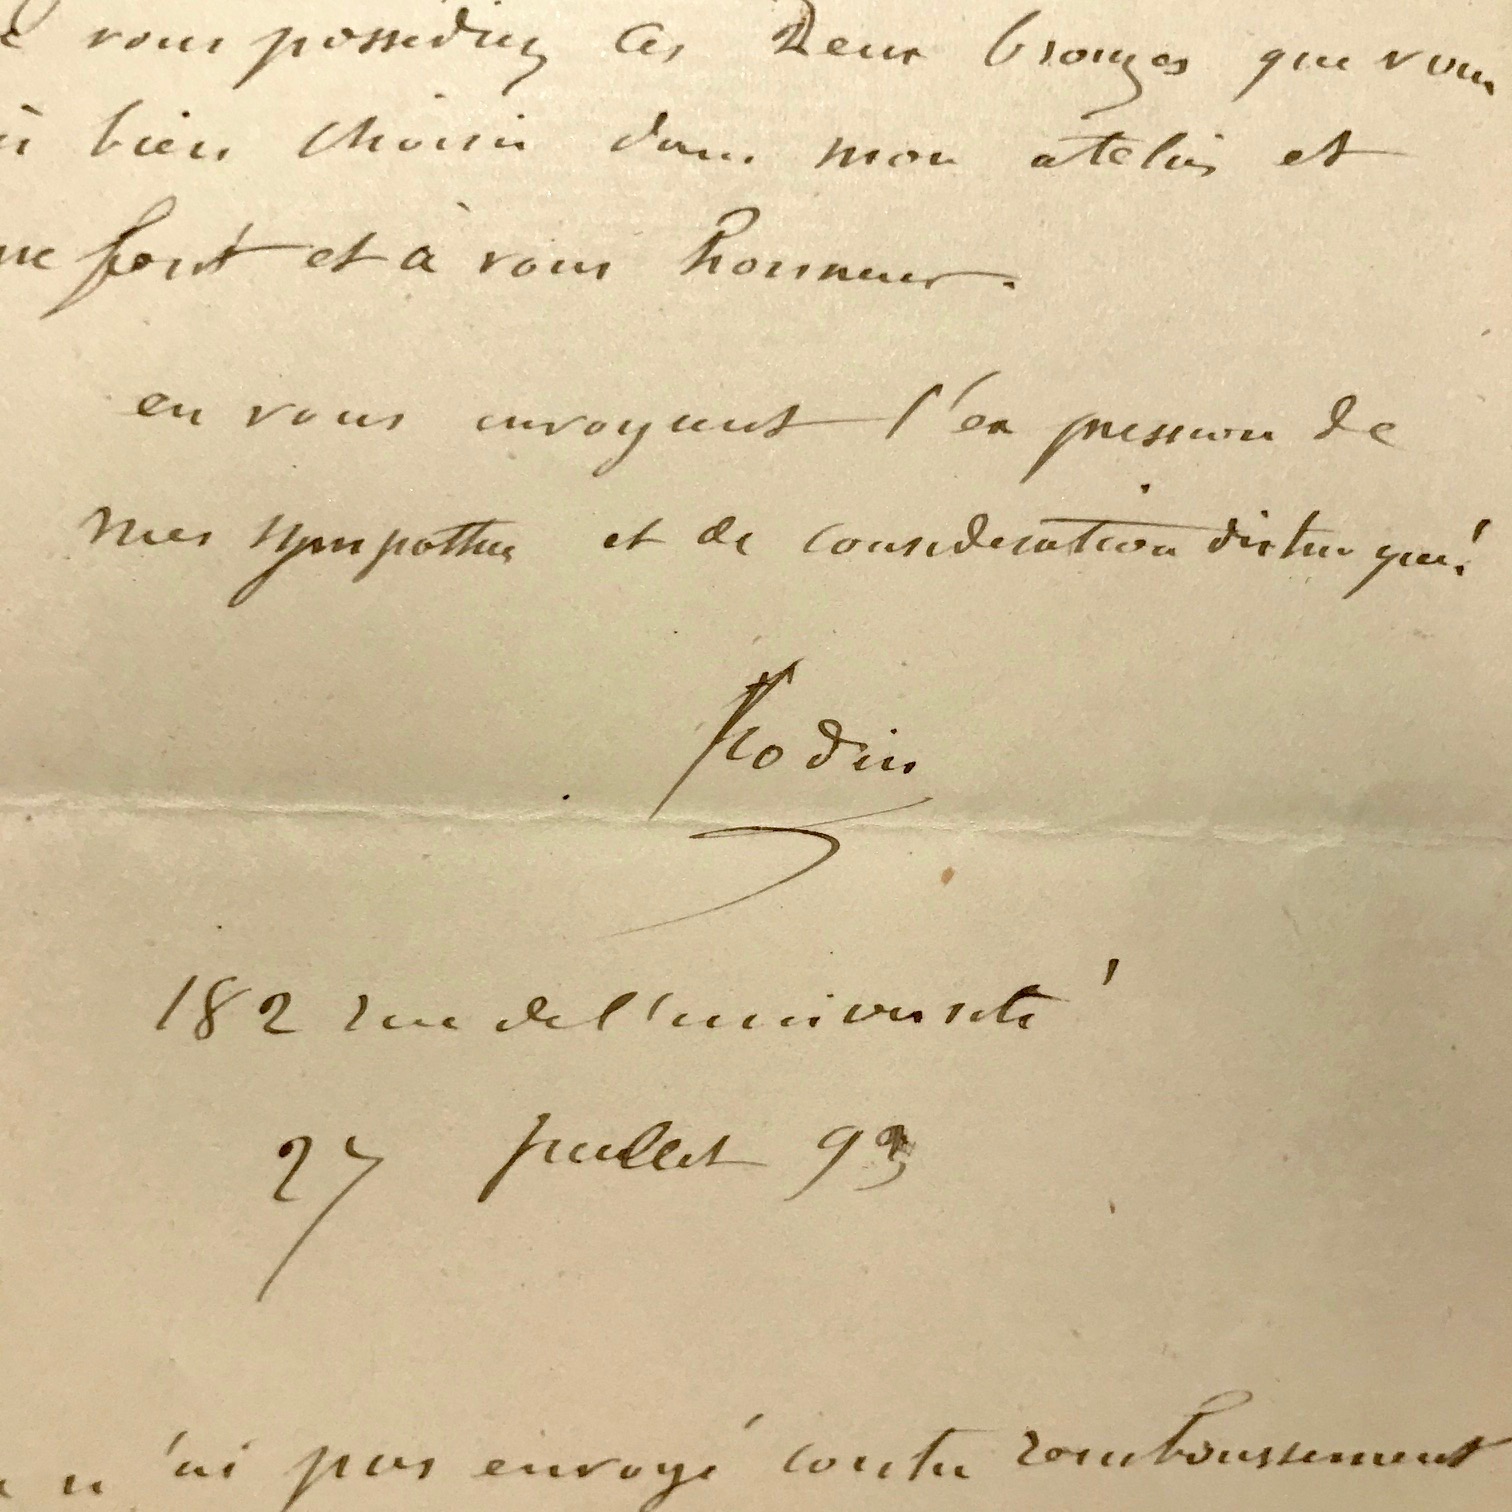 vous possédiez ces deux bronzes que vous
bien choisir dans mon atelier et
me font et à vous honneur.
en vous envoyant l'expression de
mes sympathies et de consideration distingué
Rodin
182 rue de l'université
27 juillet 93
n'ai pas envoyé contre remboussement